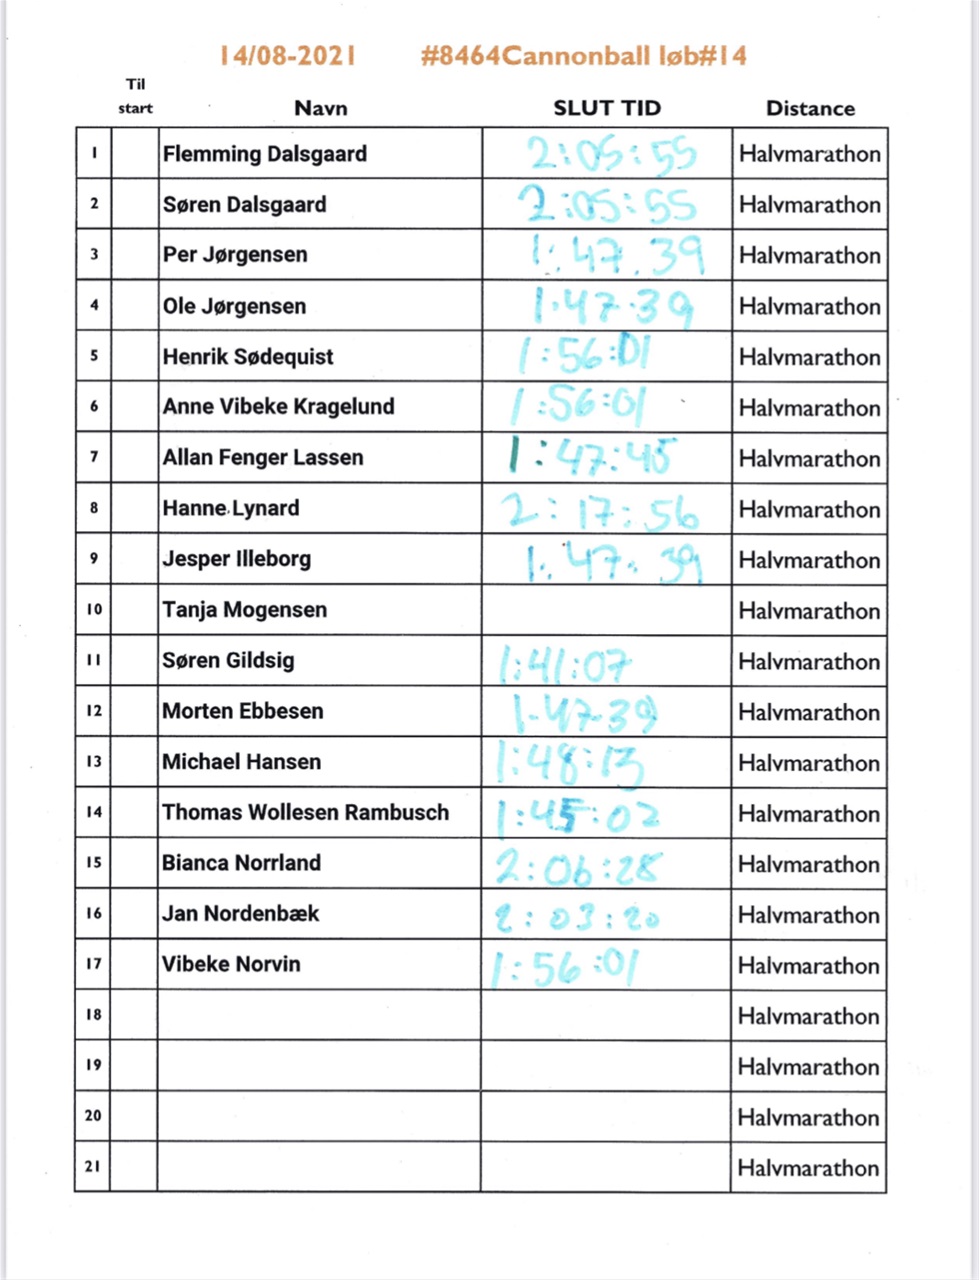 14/08-2021 #8464Cannonball løb#14
Til
start Navn SLUT TID Distance
1 Flemming Dalsgaard 2:05:55 Halvmarathon
2 Søren Dalsgaard 2:05:55 Halvmarathon
3 Per Jørgensen 1:47.39 Halvmarathon
4 Ole Jørgensen 1.47.39 Halvmarathon
5 Henrik Sødequist 1:56:01 Halvmarathon
6 Anne Vibeke Kragelund 1:56:01 Halvmarathon
7 Allan Fenger Lassen 1:47:45 Halvmarathon
8 Hanne Lynard 2:17:56 Halvmarathon
9 Jesper Illeborg 1:47:39 Halvmarathon
10 Tanja Mogensen Halvmarathon
11 Søren Gildsig 1:41:07 Halvmarathon
12 Morten Ebbesen 1-47-39 Halvmarathon
13 Michael Hansen 1:48:13 Halvmarathon
14 Thomas Wollesen Rambusch 1:45:02 Halvmarathon
15 Bianca Norrland 2:06:28 Halvmarathon
16 Jan Nordenbæk 2:03:20 Halvmarathon
17 Vibeke Norvin 1:56:01 Halvmarathon
18 Halvmarathon
19 Halvmarathon
20 Halvmarathon
21 Halvmarathon